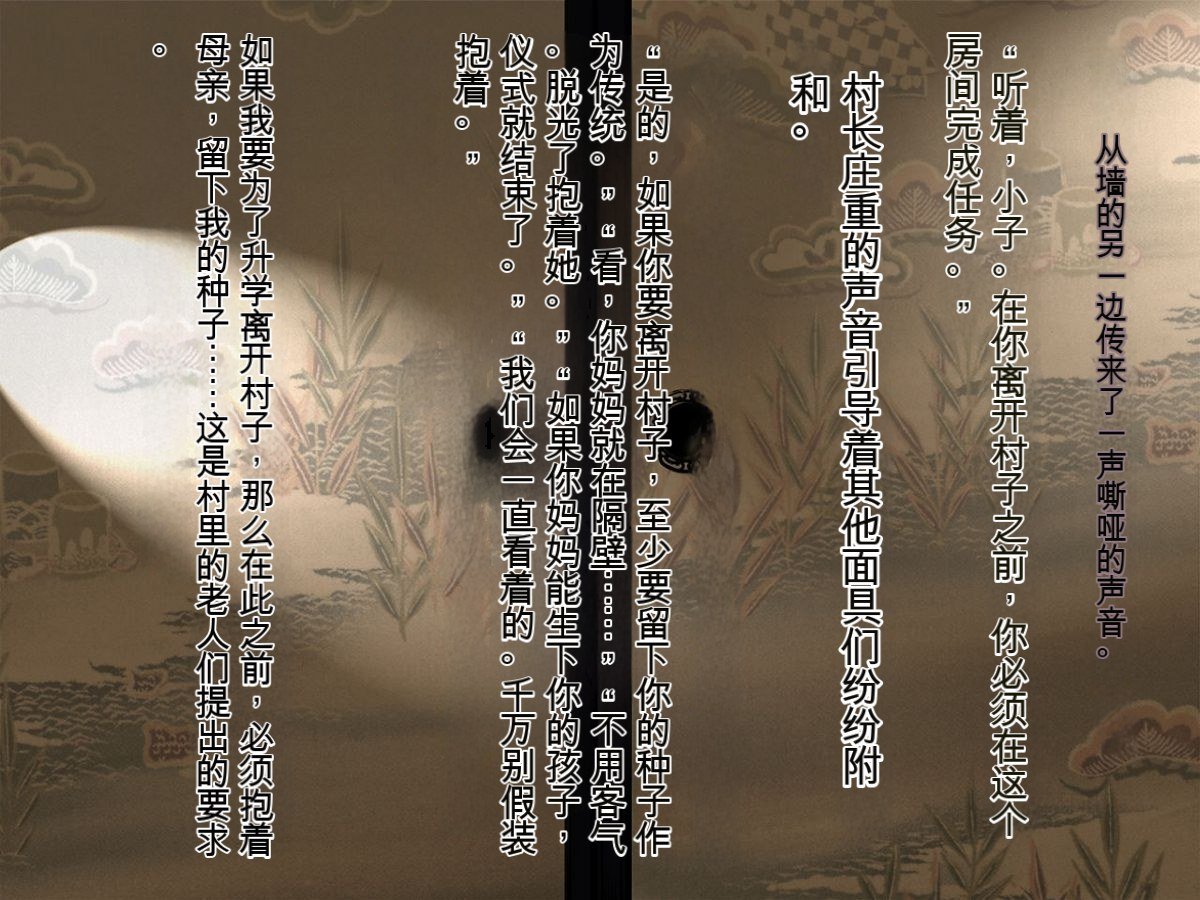 从墙的另一边传来了一声嘶哑的声音。
“听着，小子。在你离开村子之前，你必须在这个
房间完成任务。”
村长庄重的声音引导着其他面具们纷纷附
和。
“是的，如果你要离开村子，至少要留下你的种子作
为传统。”“看，你妈妈就在隔壁……”“不用客气
。脱光了抱着她。”“如果你妈妈能生下你的孩子，
仪式就结束了。”“我们会一直看着的。千万别假装
抱着。”
如果我要为了升学离开村子，那么在此之前，必须抱着
母亲，留下我的种子……这是村里的老人们提出的要求
。